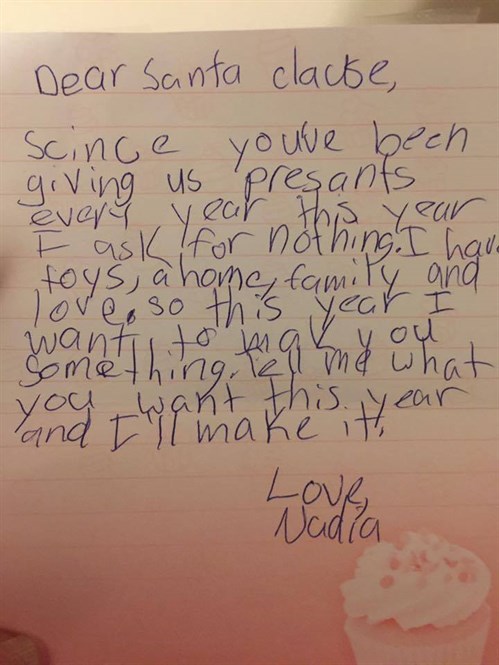 Dear Santa clackse,
Scince you've been
giving us presants
every year this year
I ask for nothing. I hav
toys, a home, family and
love, so this year I
want to mak you
something. Tell me what
you want this year
and I'll make it.
Love,
Nadia